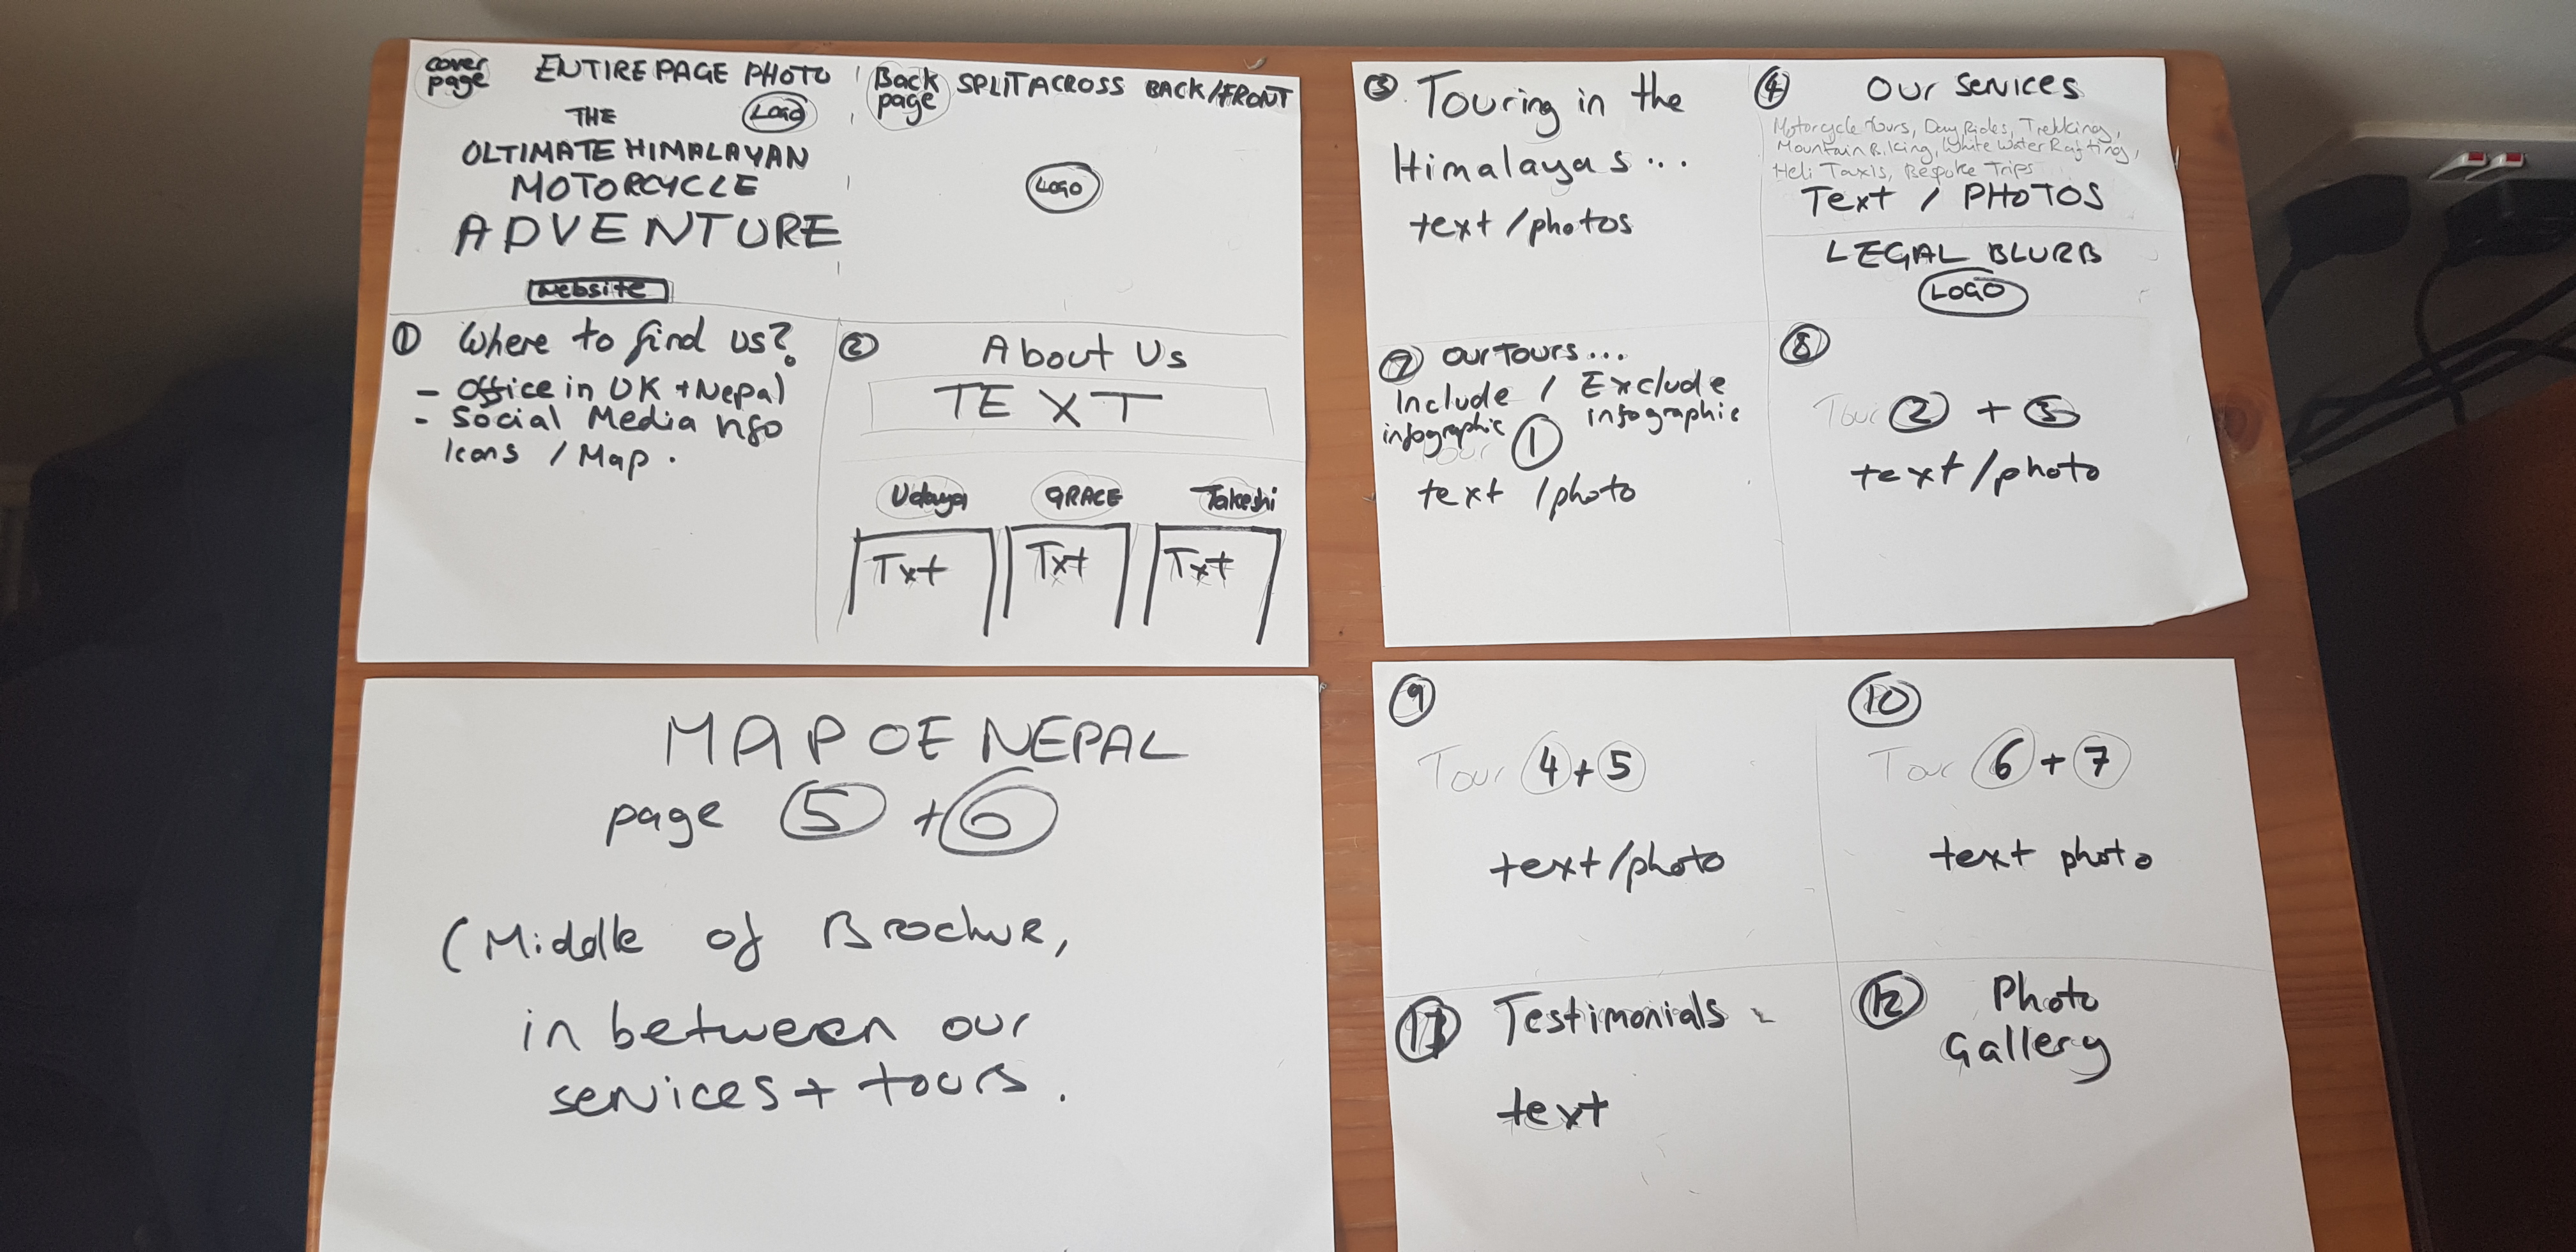 cover page
ENTIRE PAGE PHOTO
LOGO
THE
OLTIMATE HIMALAYAN
MOTORCYCLE
ADVENTURE
website
Back page
SPLIT ACROSS BACK/FRONT
LOGO
① Where to find us?
- Office in UK + Nepal
- Social Media nfo
Icons / Map.
② About Us
TEXT
Udaya GRACE Takeshi
Txt Txt Txt
③ Touring in the
Himalayas...
text / photos
④ Our Services
Motorcycle Tours, Day Rides, Trekking,
Mountain Biking, White Water Rafting,
Heli Taxis, Bespoke Trips
Text / PHOTOS
LEGAL BLURB
LOGO
⑦ Our Tours...
Include / Exclude
infographic infographic
Tour ①
text / photo
⑧
Tour ② + ③
text / photo
MAP OF NEPAL
page ⑤ + ⑥
(Middle of Brochure,
in between our
services + tours.
⑨
Tour ④ + ⑤
text / photo
⑩
Tour ⑥ + ⑦
text photo
⑪ Testimonials -
text
⑫ Photo
Gallery